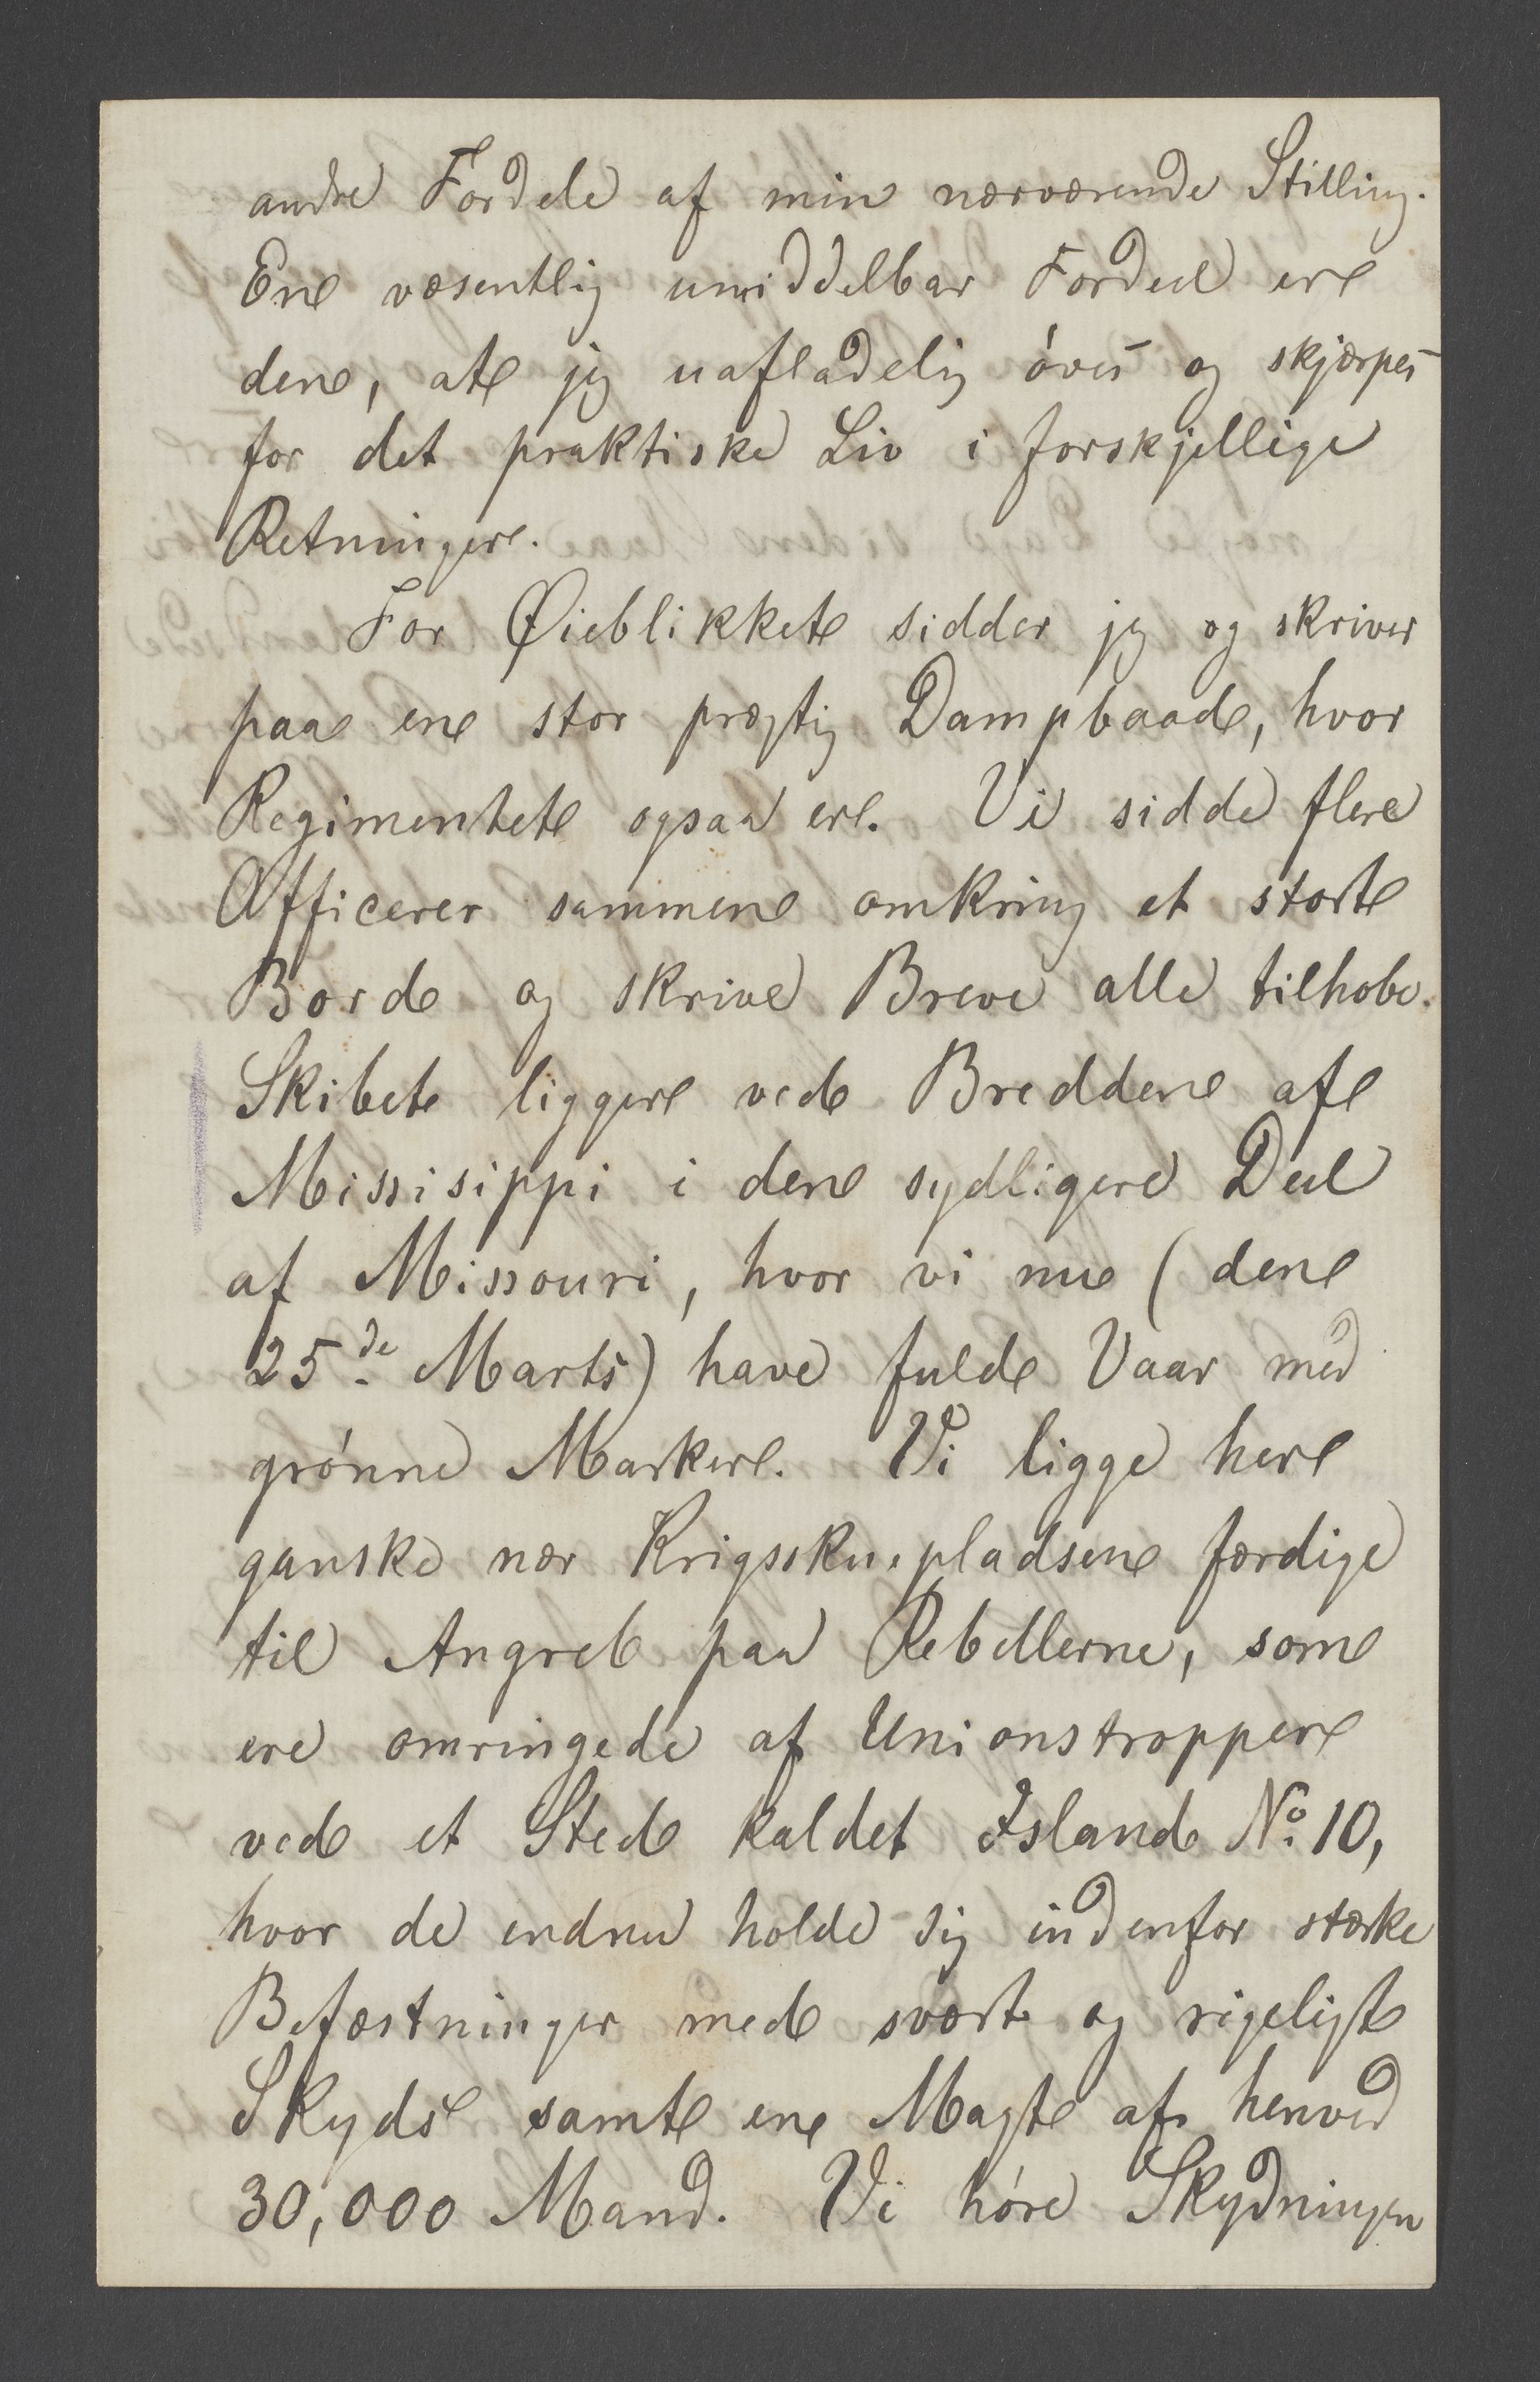 andre Fordele af min nærværende Stilling.
En væsentlig umiddelbar Fordeel er
den, at jeg uafladelig øves og skjærpes
for det praktiske Liv i forskjellige
Retninger.
For Øieblikket sidder jeg og skriver
paa en stor prægtig Dampbaad, hvor
Regimentet ogsaa er. Vi sidde flere
Officerer sammen omkring et stort
Bord og skrive Breve alle tilhobe.
Skibet ligger ved Bredden af
Missisippi i den sydligere Deel
af Missouri, hvor vi nu (den
25de Marts) have fuld Vaar med
grønne Marker. Vi ligge her
ganske nær Krigsskuepladsen færdige
til Angreb paa Rebellerne, som
ere omringede af Unionstropper
ved et Sted kaldet Island No. 10,
hvor de endnu holde sig indenfor stærke
Befæstninger med svært og rigeligt
Skyds samt en Magt af henved
30,000 Mand. Vi høre Skydningen